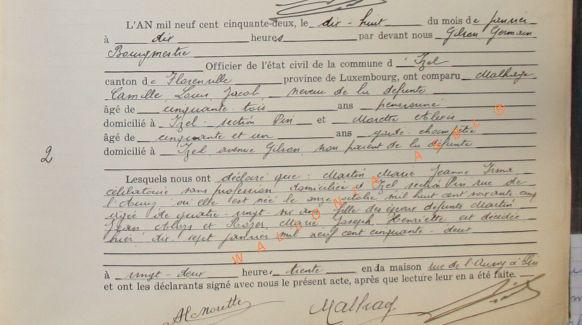 L'AN mil neuf cent cinquante-deux, le dix-huit du mois de janvier
à dix heures par devant nous Gilson Germain
Bourgmestre
Officier de l'état civil de la commune d'Izel
canton de Florenville province de Luxembourg, ont comparu
Camille Louis Jacob, neveu de la défunte
âgé de cinquante-trois ans pensionné
domicilié à Izel section Pin et
âgé de cinquante et un ans garde-champêtre
2
domicilié à Izel avenue Gilson, non parent de la défunte
Lesquels nous ont déclaré que: Martin Marie Jeanne Irma
célibataire sans profession domiciliée à Izel section Pin rue de
l'Aunoy où elle est née le onze octobre mil huit cent soixante cinq
âgée de quatre-vingt-six ans fille des époux défunts Martin
Jean et Marie Joseph Henriette est décédée
hier dix-sept janvier mil neuf cent cinquante-deux
à vingt-deux heures trente en la maison rue de l'Aunoy à Pin
et ont les déclarants signé avec nous le présent acte, après que lecture leur en a été faite.